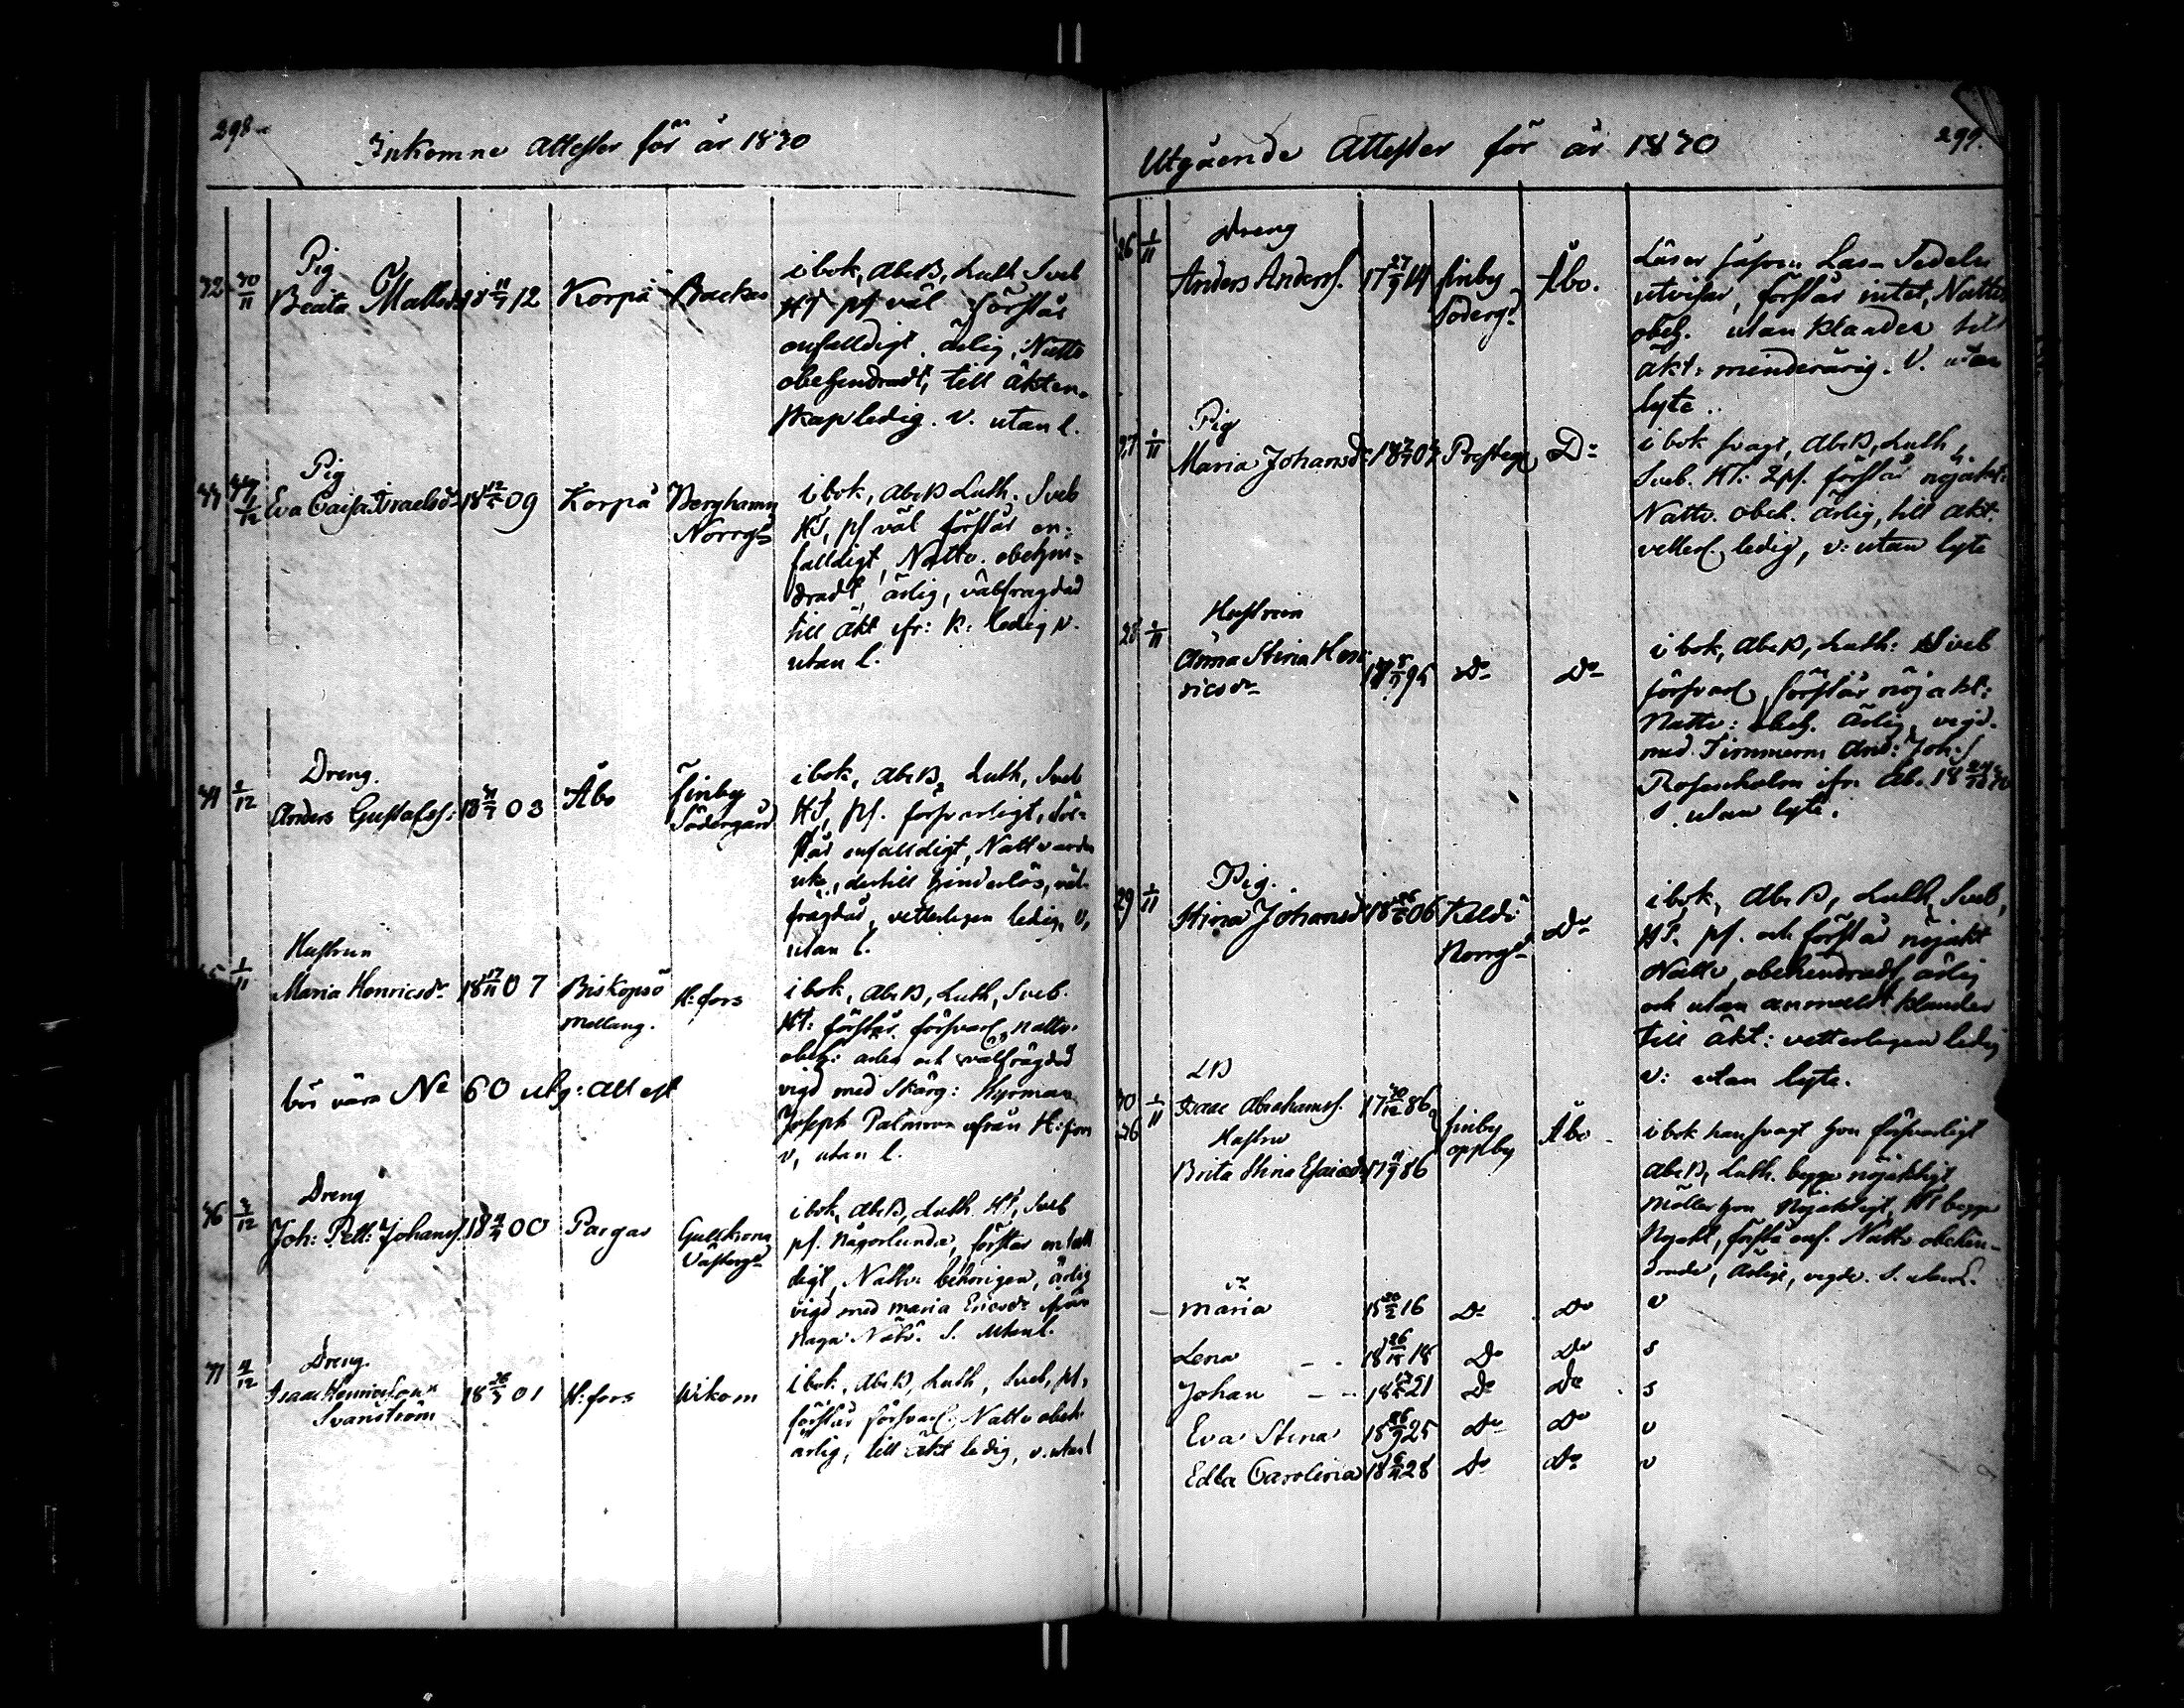 298
Inkomne Attester för år 1830
32 30/11 Pig
Beata Mattsd 18 11/9 12 Korpå Backas
i bok, AbcB, Luth Sveb
HT ps väl förstår
enfalldigt ärlig, Nattv
obehindradt, till äkten-
skap ledig. V. utan l.
Pig
Eva Caisa Israelsdr 18 12/5 09 Korpå Berghamn
Norrgd
i bok, AbcB Luth. Sveb
HT, ps väl förstår en-
falldigt, Nattv. obehin-
dradt, ärlig, välfrägdad
till äkt ifr: K: ledig v.
utan l.
34 2/12 Dreng.
Anders Gustafss: 18 03 Åbo Finby
Södergård
i bok, AbcB, Luth, Sveb
HT, ps. försvarligt, för-
står enfalldigt, Nattvarden
dertill hinderlös, väl-
frägdad, vetterligen ledig, V,
utan l.
35 1/11 Hustrun
Maria Henricsdr 18 17/11 07 Biskopsö
Mellang. H:fors
i bok, AbcB, Luth, Sveb.
HT: förstår försvarl nattv.
obeh: ärlig och välfrägdad
vigd med Skärg: Hyrman
Joseph Palmron ifrån H:fors
v, utan l.
bör vara No 60 utg: attest
36 2/12 Dreng
Joh: Pett: Johanss. 18 00 Pargas Gullkrona
Västergd
i bok, AbcB, Luth. HT, Sveb
ps. någorlunda, förstår enfall
digt, Nattv: behörigen, ärlig
vigd med Maria Ericsdr ifrån
Naga. Nåbo. S. utan l.
37 4/12 Dreng.
Isaac Henricsson
Svanström 18 01 H:fors Wikom
i bok, AbcB, Luth, Sveb, ps,
förstår försvarl: Nattv obeh.
ärlig, till äkt ledig, v. utan l
299.
Utgående Attester för år 1830
26 1/11 Dreng
Anders Anderss. 17 27/9 14 Finby
Södergd Åbo.
Läser såsom Läs-Sedeln
utvisar, förstår intet, Nattv
obeh. utan klander till
äkt: minderårig. V. utan
lyte..
27 1/11 Pig
Maria Johansdr 18 Prestegd Do
i bok svagt, AbcB, Luth,
Sveb. HT: 2 ps. förstår nöjakt:
Nattv. obeh. ärlig, till äkt.
vetterl. ledig, v: utan lyte
28 1/11 Hustrun
Anna Stina Hen
ricsdr 17 95 Do Do
i bok, AbcB, Luth: Sveb
försvarl, förstår nöjakt:
Nattv: obeh. ärlig, vigd.
med Timmerm And: Joh:
Rosenholm ifr. Åb. 18
S. utan lyte.
29 1/11 Pig.
Stina Johansdr 18 06 Keldö
Norrgd Do
i bok, AbcB, Luth, Sveb,
HT. ps. och förstår nöjakt
Nattv. obehindradt, ärlig
och utan anmeldt klander
till äkt: vetterligen ledig
v: utan lyte.
30 1/11 LB
Isaac Abrahamss. 17 30/12 86
36 Hustru
Brita Stina Esaiasdr 17 86 Finby
oppby Åbo
i bok han svagt hon försvarligt
AbcB, Luth. begge nöjaktigt
Möller hon Nöjaktigt, HT begge
Nöjakt, förstå enf. Nattv obehin-
drade, ärlige, vigde. S. utan l.
dr
Maria 18 20/2 16 Do Do v
Lena 18 18 Do Do s
Johan 18 21 Do Do s
Eva Stina 18 26/9 25 Do Do v
Edla Carolina 18 28 Do Do v